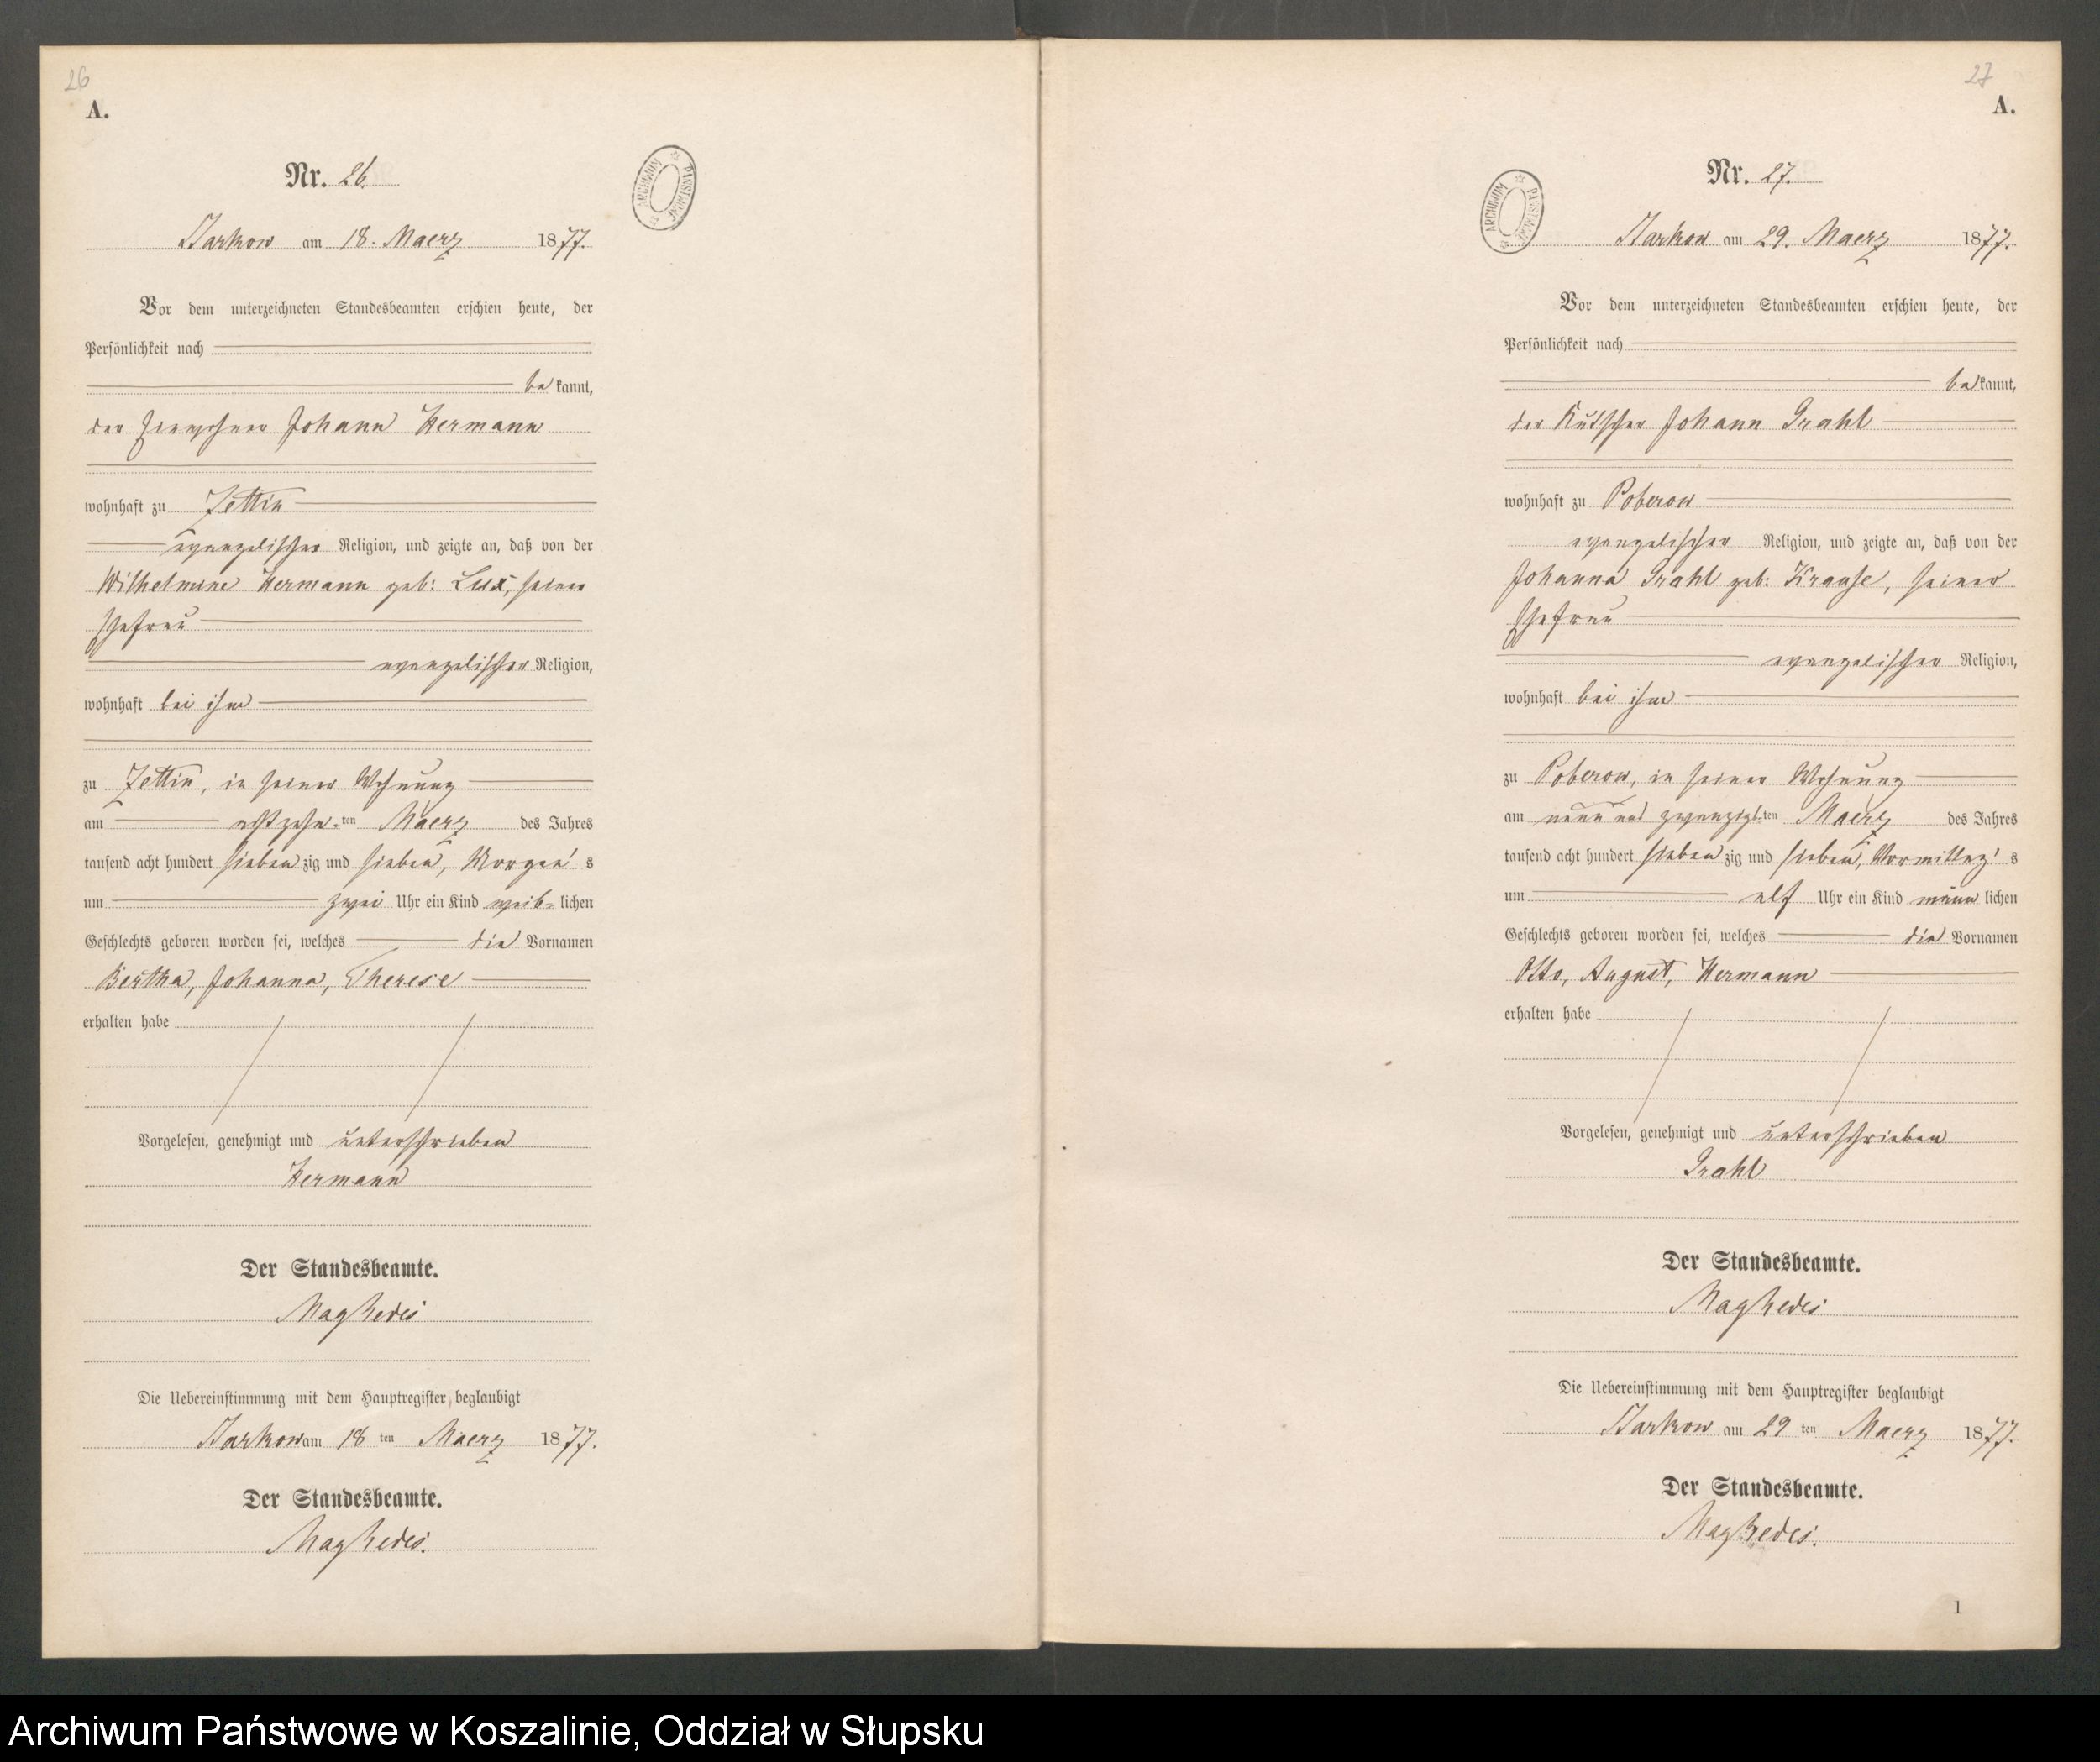 26
A.
Nr. 26.
ARCHIWUM PAŃSTWOWE
Barkow am 18. Maerz 1877.
Vor dem unterzeichneten Standesbeamten erschien heute, der
Persönlichkeit nach
be kannt,
der Einwohner Johann Hermann
wohnhaft zu Zettin
evangelischer Religion, und zeigte an, daß von der
Wilhelmine Hermann geb: Lux, seiner
Ehefrau
evangelischer Religion,
wohnhaft bei ihm
zu Zettin, in seiner Wohnung
am achtzehn-ten Maerz des Jahres
tausend acht hundert sieben zig und sieben, Morgen's
um zwei Uhr ein Kind weib- lichen
Geschlechts geboren worden sei, welches die Vornamen
Bertha, Johanna, Therese
erhalten habe
Vorgelesen, genehmigt und unterschrieben
Hermann
Der Standesbeamte.
Die Uebereinstimmung mit dem Hauptregister beglaubigt
Barkow am 18 ten Maerz 1877.
Der Standesbeamte.
27
A.
Nr. 27.
ARCHIWUM PAŃSTWOWE
Barkow am 29. Maerz 1877.
Vor dem unterzeichneten Standesbeamten erschien heute, der
Persönlichkeit nach
be kannt,
der Kutscher Johann Grahl
wohnhaft zu Poberow
evangelischer Religion, und zeigte an, daß von der
Johanna Grahl geb: Krause, seiner
Ehefrau
evangelischer Religion,
wohnhaft bei ihm
zu Poberow, in seiner Wohnung
am neun und zwanzigs-ten Maerz des Jahres
tausend acht hundert sieben zig und sieben, Vormittag's
um elf Uhr ein Kind männ lichen
Geschlechts geboren worden sei, welches die Vornamen
Otto, August, Hermann
erhalten habe
Vorgelesen, genehmigt und unterschrieben
Grahl
Der Standesbeamte.
Die Uebereinstimmung mit dem Hauptregister beglaubigt
Barkow am 29 ten Maerz 1877.
Der Standesbeamte.
1
Archiwum Państwowe w Koszalinie, Oddział w Słupsku